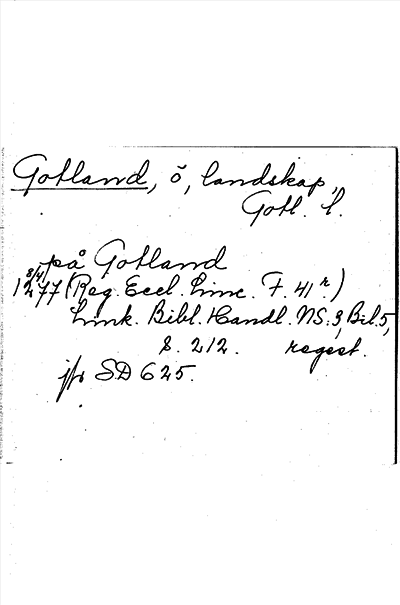 Gotland, ö, landskap,
Gotl. l.
på Gotland
1277 8/4 (Reg. Eccl. Linc. F. 41 r)
Link. Bibl. Handl. NS. 3, Bil. 5,
s. 212. regest.
jfr SD 625.